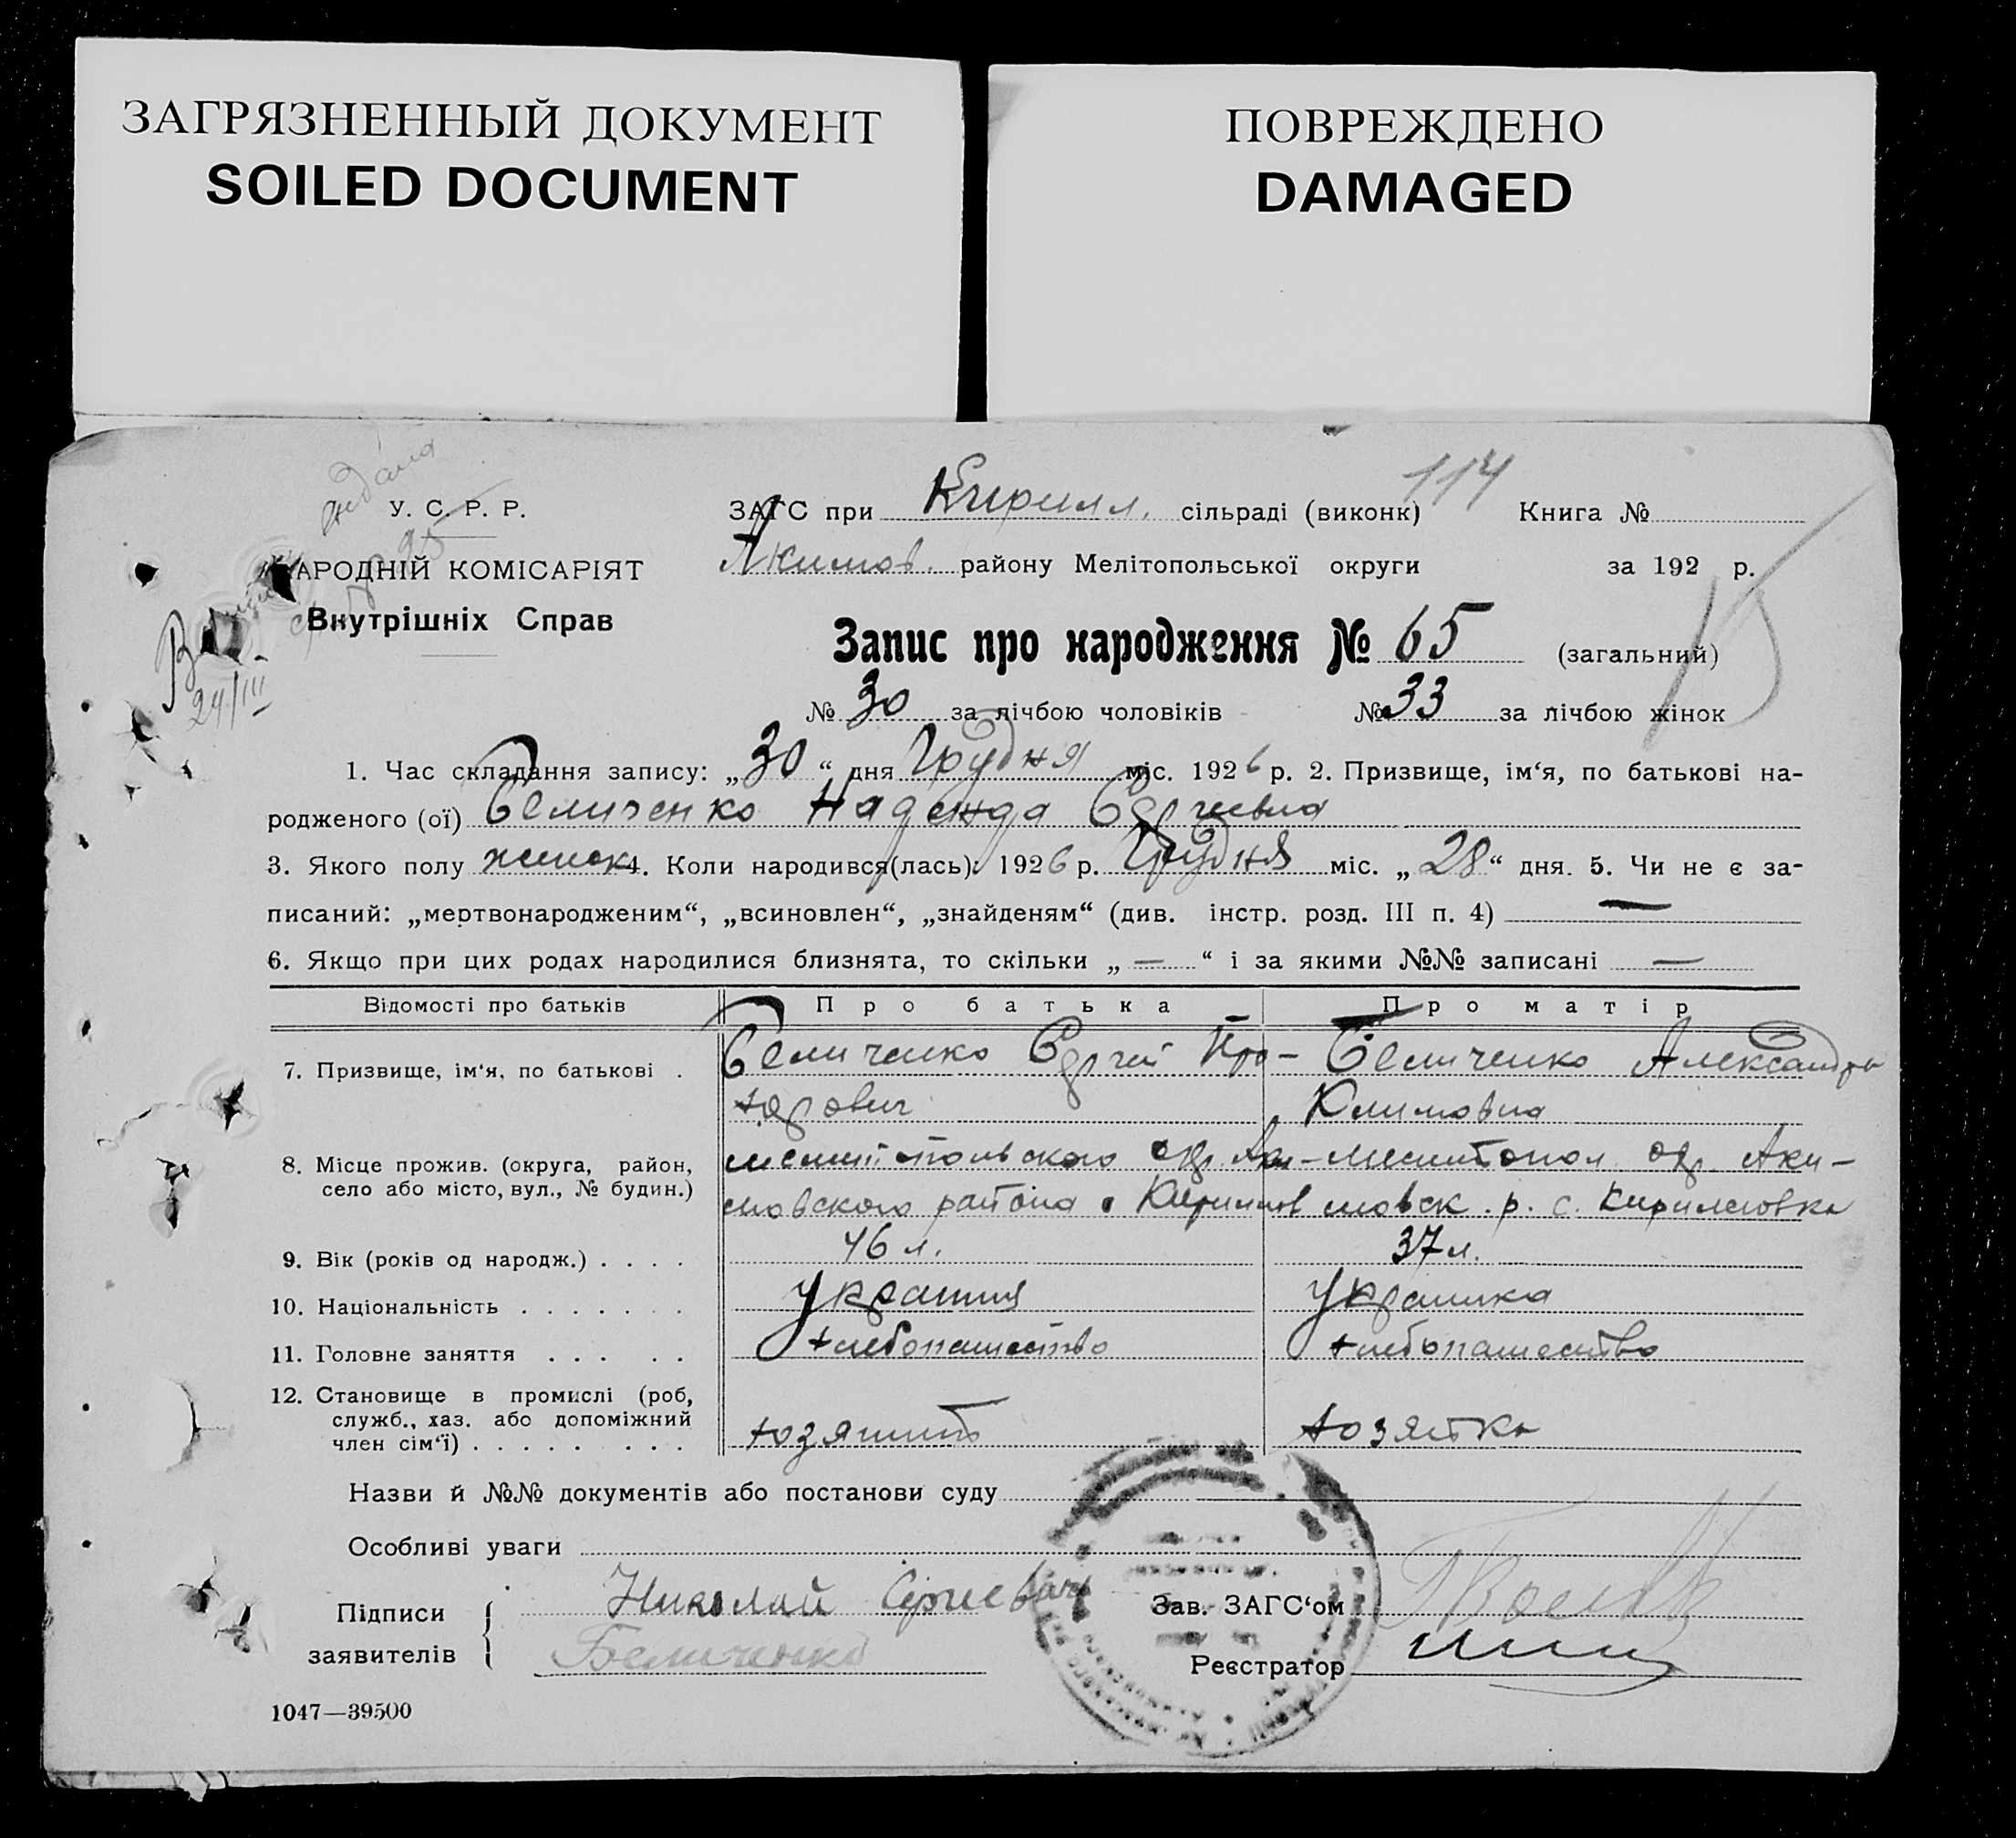 ЗАГРЯЗНЕННЫЙ ДОКУМЕНТ
SOILED DOCUMENT
ПОВРЕЖДЕНО
DAMAGED
У. С. Р. Р.
АРОДНІЙ КОМІСАРІЯТ
Внутрішніх Справ
24/III
114
ЗАГС при Кирилл. сільраді (виконк) Книга №
Акимов. району Мелітопольської округи за 192 р.
Запис про народження № 65 (загальний)
№ 30 за лічбою чоловіків № 33 за лічбою жінок
1. Час складання запису: „30“ дня Грудня міс. 1926 р. 2. Призвище, ім‘я, по батькові на-
родженого (ої) Беличенко Надежда Сергеевна
3. Якого полу женск 4. Коли народився(лась): 1926 р. Грудня міс. „28“ дня. 5. Чи не є за-
писаний: „мертвонародженим“, „всиновлен“, „знайденям“ (див. інстр. розд. III п. 4) —
6. Якщо при цих родах народилися близнята, то скільки „—“ і за якими №№ записані —
Відомості про батьків Про батька Про матір
7. Призвище, ім‘я, по батькові . Беличенко Сергей Про- Беличенко Александра
хорович Климовна
8. Місце прожив. (округа, район, мелитопольского окр. Аки- мелитопол окр. Аки-
село або місто, вул., № будин.) мовского района Кирилов мовск. р. с. Кириловка
9. Вік (років од народж.) . . . . 46 л. 37 л.
10. Національність . . . . . . . Украинц Украинка
11. Головне заняття . . . . . хлебопашество хлебопашество
12. Становище в промислі (роб,
служб., хаз. або допоміжний
член сім‘ї) . . . . . . . . хозяин хозяйка
Назви й №№ документів або постанови суду
Особливі уваги
Підписи Николай Сергиевич Зав. ЗАГС‘ом
заявителів Беличенко Реєстратор
1047—39500